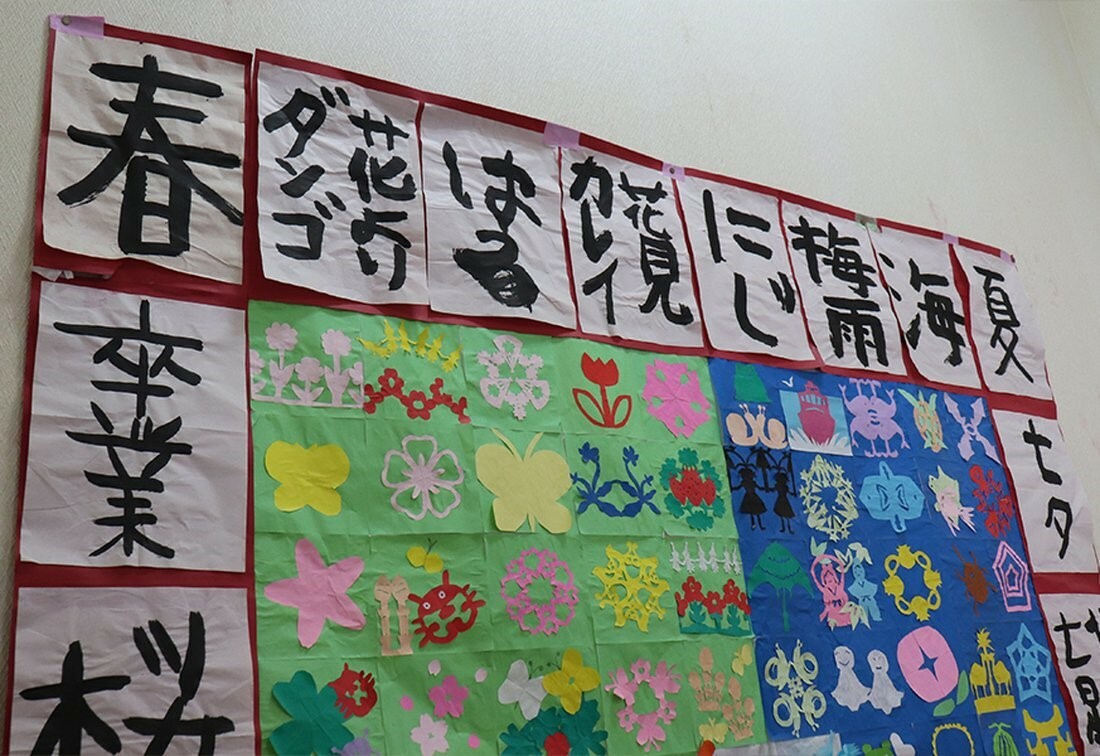 春
花より
ダンゴ
はる
花見
カレイ
にじ
梅雨
海
夏
卒業
七夕
桜
七